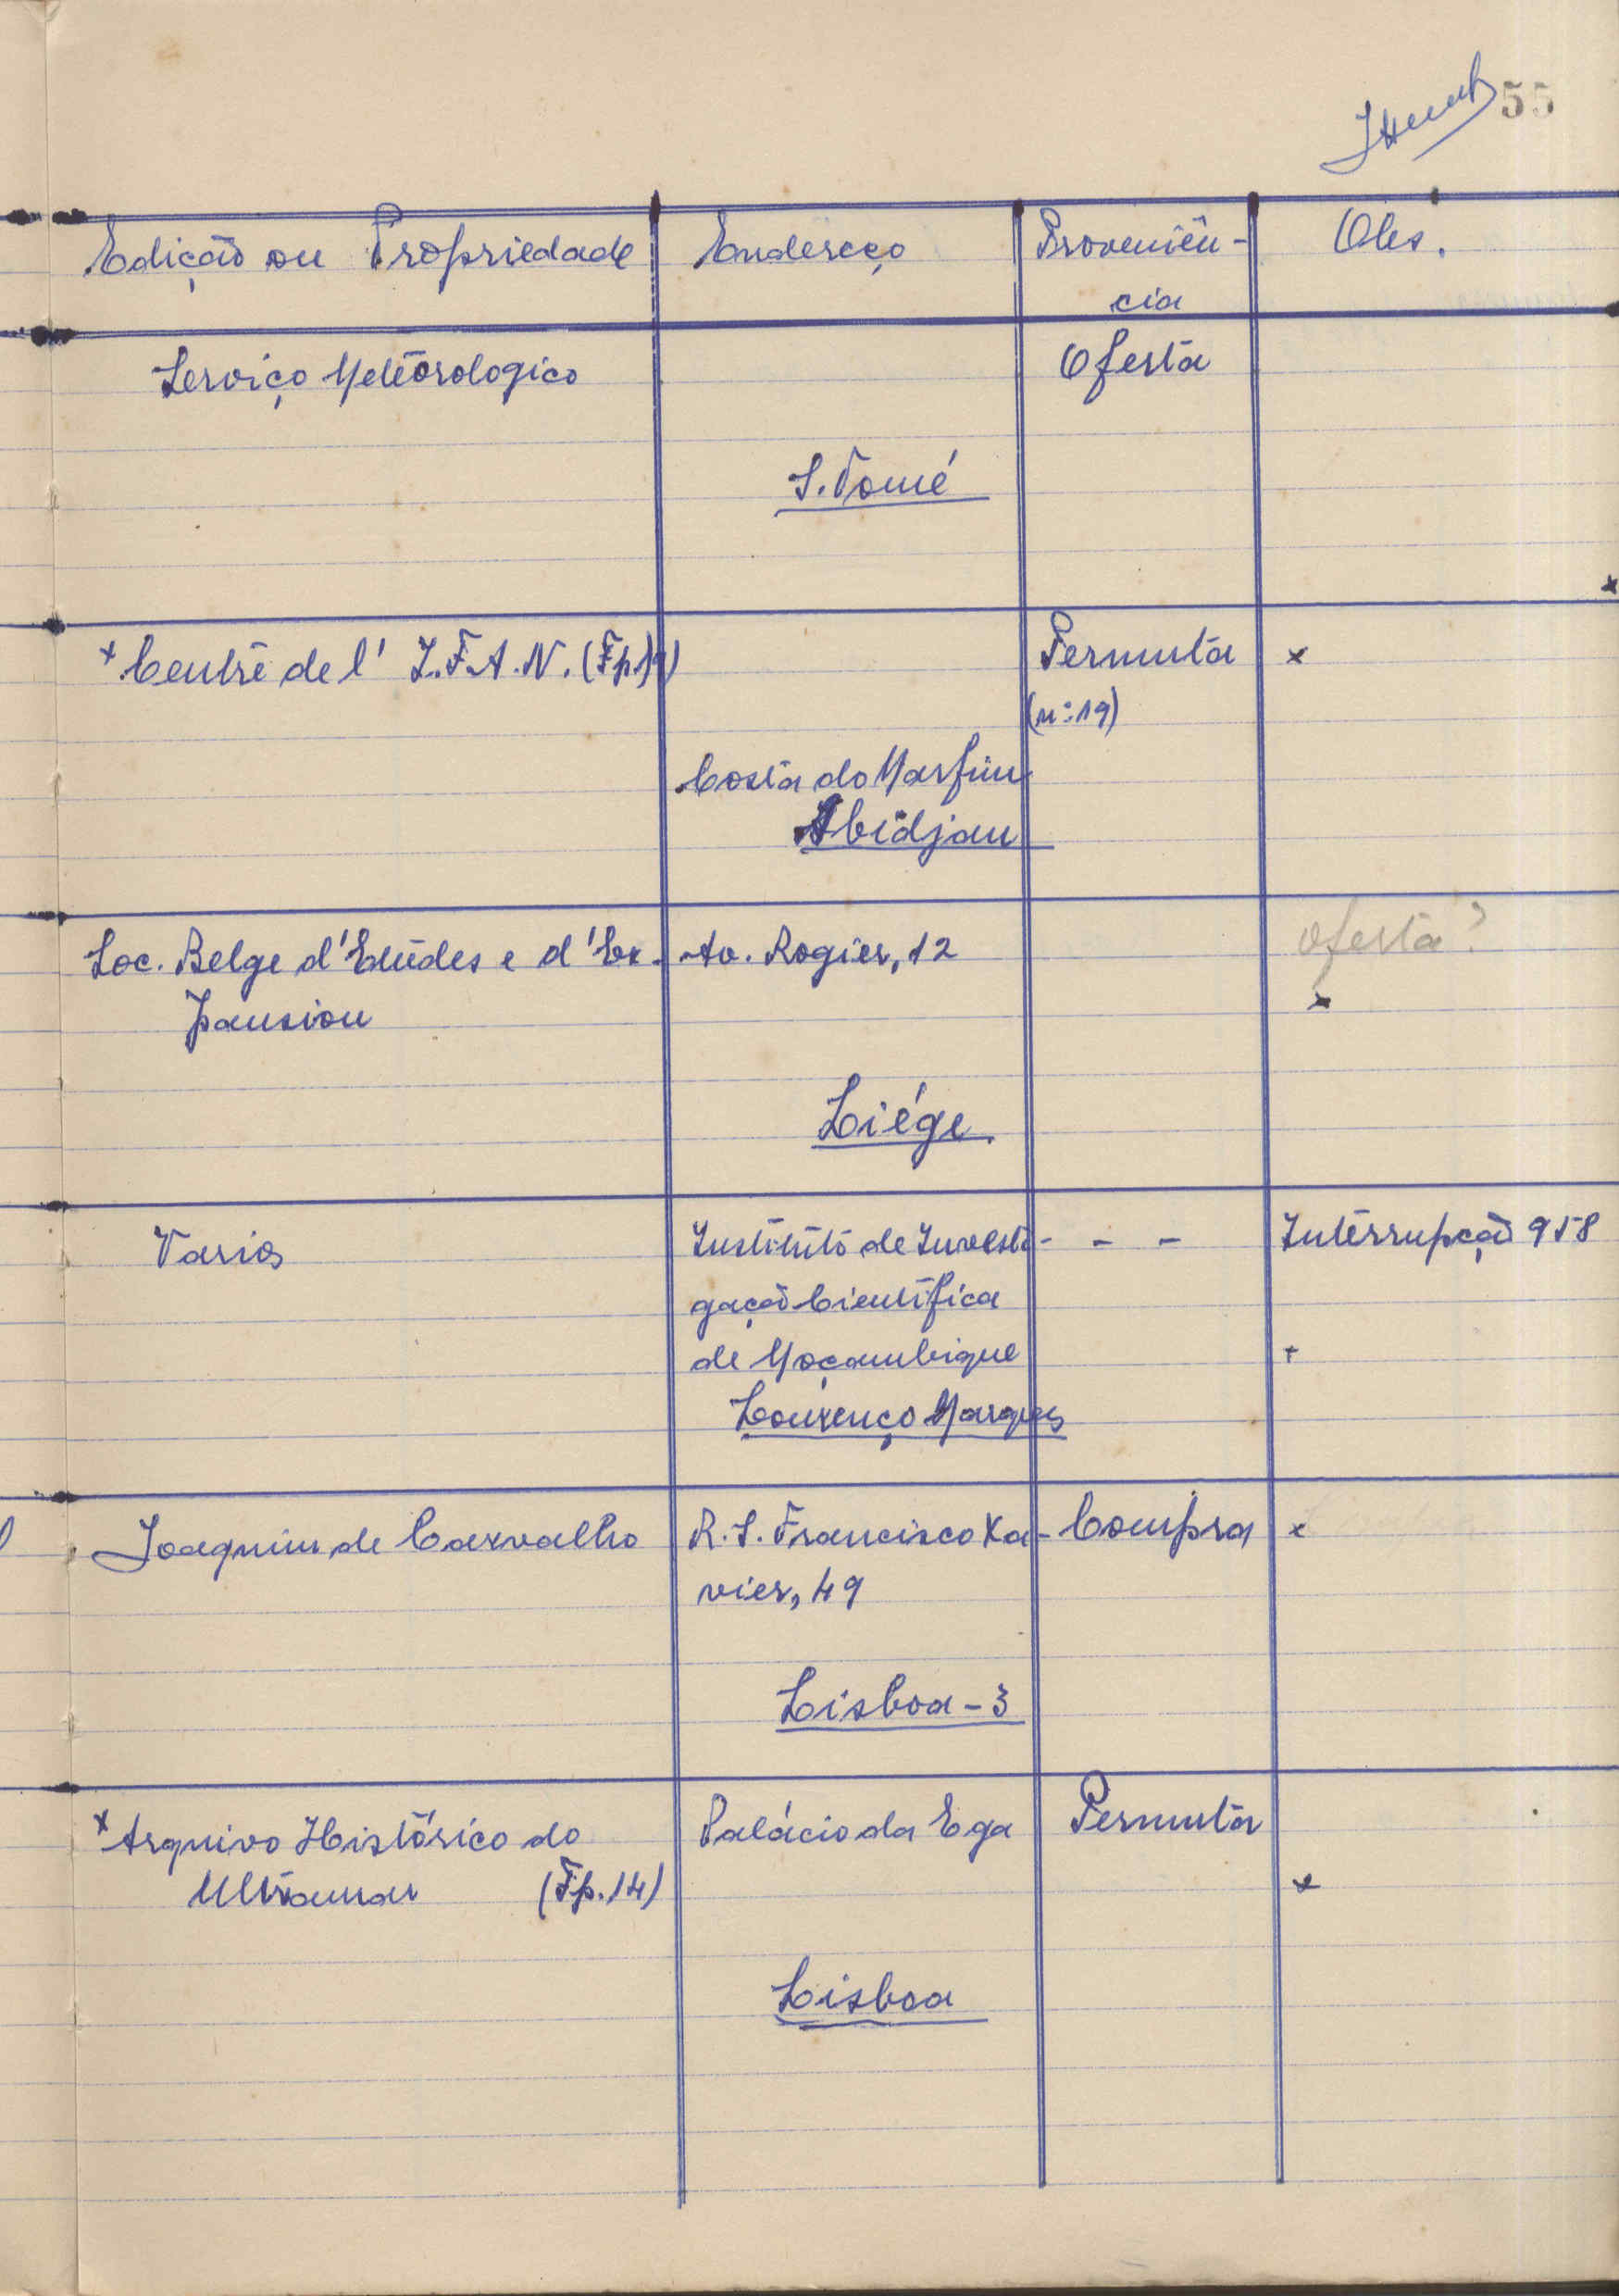 55
Edição ou Propriedade Endereço Proveniên-
cia Obs.
Serviço Meteorologico Oferta
S. Tomé
x Centre de l' I.F.A.N. (Fp.19) Permuta x
(nº 19)
Costa do Marfim
Abidjan
Soc. Belge d'Etudes e d'Ex- Av. Rogier, 12 oferta?
pansion x
Liége.
Varios Instituto de Investi- - - Interrupção 958
gação Cientifica
de Moçambique +
Lourenço Marques
Joaquim de Carvalho R. S. Francisco Xa- Compra x
vier, 49
Lisboa - 3
x Arquivo Histórico do Palácio da Ega Permuta
Ultramar (Fp. 14) x
Lisboa